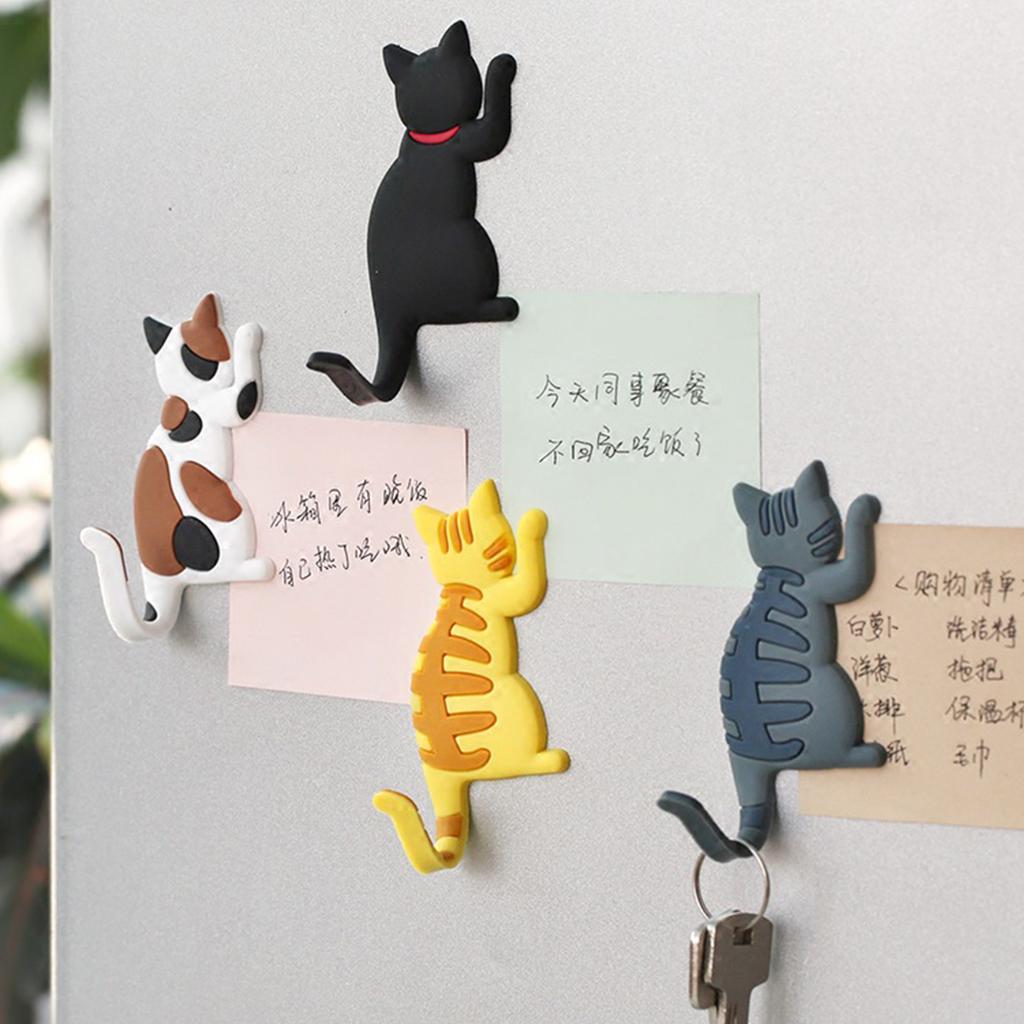 今天同事聚餐
不回家吃饭了
冰箱里有晚饭
自己热了吃哦.
<购物清单
白萝卜 洗洁精
洋葱 拖把
排 保温杯
纸 毛巾